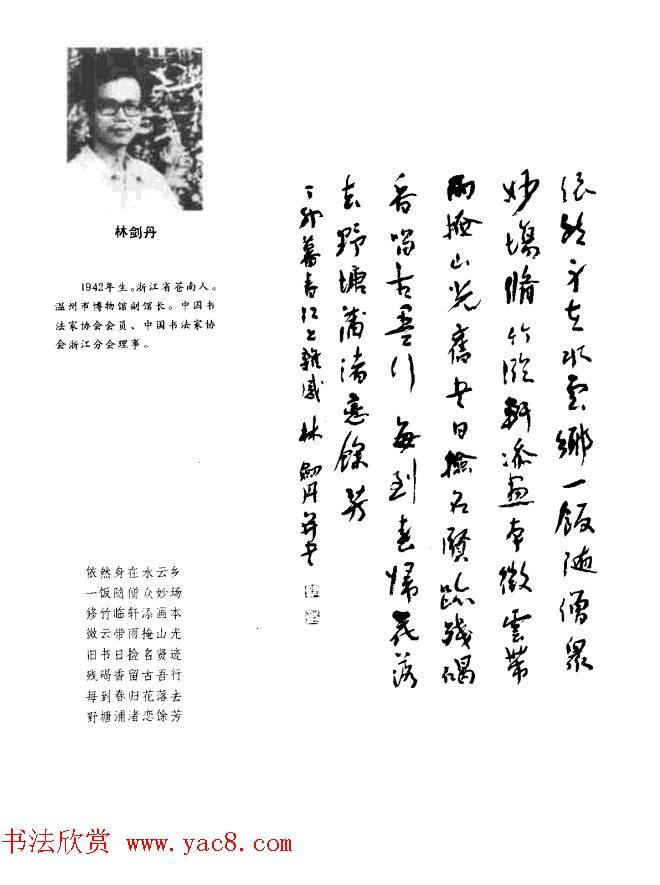 林剑丹
1942年生。浙江省苍南人。
温州市博物馆副馆长。中国书
法家协会会员、中国书法家协
会浙江分会理事。
依然身在水雲鄉一飯随僧眾
妙場脩竹臨軒添畫本微雲帶
雨掩山光舊書日撿名賢跡殘碣
香留古吾行每到春歸花落
去野塘蒲渚戀餘芳
丁卯暮春江上雜感林劍丹并書
依然身在水云乡
一饭随僧众妙场
修竹临轩添画本
微云带雨掩山光
旧书日捡名贤迹
残碣香留古吾行
每到春归花落去
野塘浦渚恋馀芳
书法欣赏 www.yac8.com